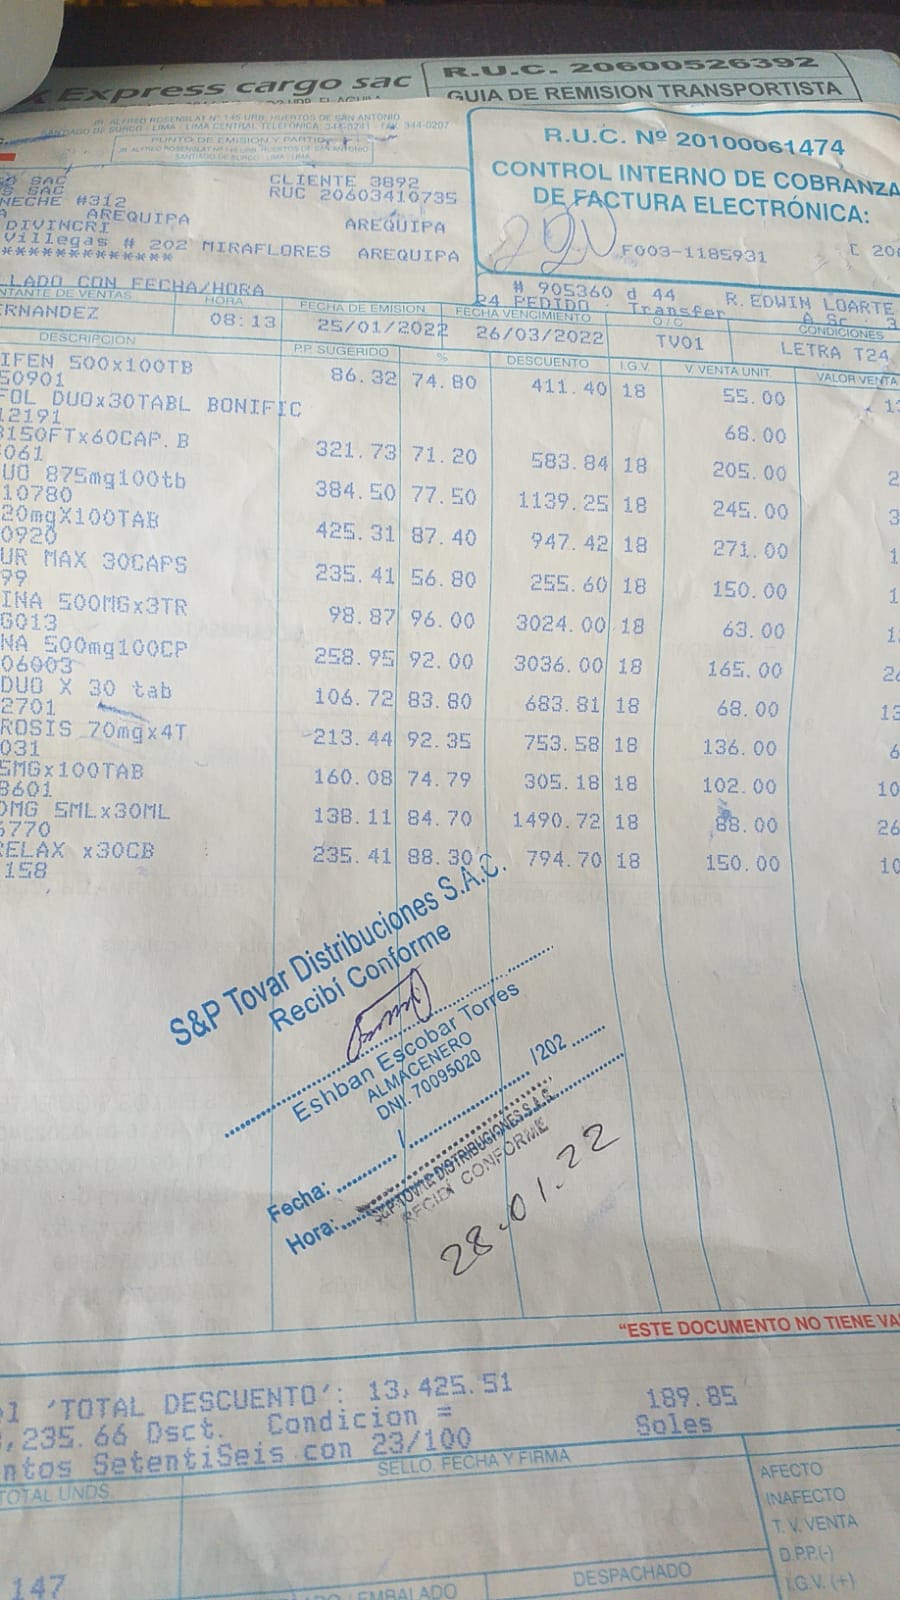 Express cargo sac
R.U.C. 20600526392
GUIA DE REMISION TRANSPORTISTA
JR. ALFRED ROSENBLAT Nº 145 URB. HUERTOS DE SAN ANTONIO
SANTIAGO DE SURCO - LIMA - LIMA CENTRAL TELEFÓNICA: 344-0241 - FAX: 344-0207
PUNTO DE EMISIÓN Y PARTIDA
SANTIAGO DE SURCO - LIMA - LIMA
R.U.C. Nº 20100061474
CONTROL INTERNO DE COBRANZA
DE FACTURA ELECTRÓNICA:
F003-1185931
SAC CLIENTE 3892
S SAC RUC 20603410735
NECHE #312
A AREQUIPA AREQUIPA
DIVINCRI
Villegas # 202 MIRAFLORES AREQUIPA
*************
LLADO CON FECHA/HORA
# 905360 d 44 R.EDWIN LOARTE
24 PEDIDO : Transfer
NTANTE DE VENTAS HORA FECHA DE EMISION FECHA VENCIMIENTO O/C CONDICIONES
ERNANDEZ 08:13 25/01/2022 26/03/2022 TV01 LETRA T24
DESCRIPCION P.P. SUGERIDO % DESCUENTO I.G.V. V. VENTA UNIT. VALOR VENTA
IFEN 500x100TB 86.32 74.80 411.40 18 55.00
50901
FOL DUOx30TABL BONIFIC 68.00
12191
B150FTx60CAP.B 321.73 71.20 583.84 18 205.00
061
UO 875mg100tb 384.50 77.50 1139.25 18 245.00
10780
20mgX100TAB 425.31 87.40 947.42 18 271.00
0920
UR MAX 30CAPS 235.41 56.80 255.60 18 150.00
99
INA 500MGx3TR 98.87 96.00 3024.00 18 63.00
G013
NA 500mg100CP 258.95 92.00 3036.00 18 165.00
06003
DUO X 30 tab 106.72 83.80 683.81 18 68.00
2701
ROSIS 70mgx4T 213.44 92.35 753.58 18 136.00
031
5MGx100TAB 160.08 74.79 305.18 18 102.00
B601
0MG 5MLx30ML 138.11 84.70 1490.72 18 88.00
6770
RELAX x30CB 235.41 88.30 794.70 18 150.00
158
S&P Tovar Distribuciones S.A.C.
Recibí Conforme
Eshban Escobar Torres
ALMACENERO
DNI. 70095020
Fecha: ........... / ............... /202 .......
Hora:
S&P TOVAR DISTRIBUCIONES S.A.C.
RECIBÍ CONFORME
28.01.22
"ESTE DOCUMENTO NO TIENE VA
el 'TOTAL DESCUENTO': 13,425.51 189.85
,235.66 Dsct. Condicion = Soles
ntos SetentiSeis con 23/100
TOTAL UNDS. SELLO, FECHA Y FIRMA
AFECTO
INAFECTO
T. V. VENTA
D.P.P.(-)
I.G.V. (+)
147
EMBALADO DESPACHADO